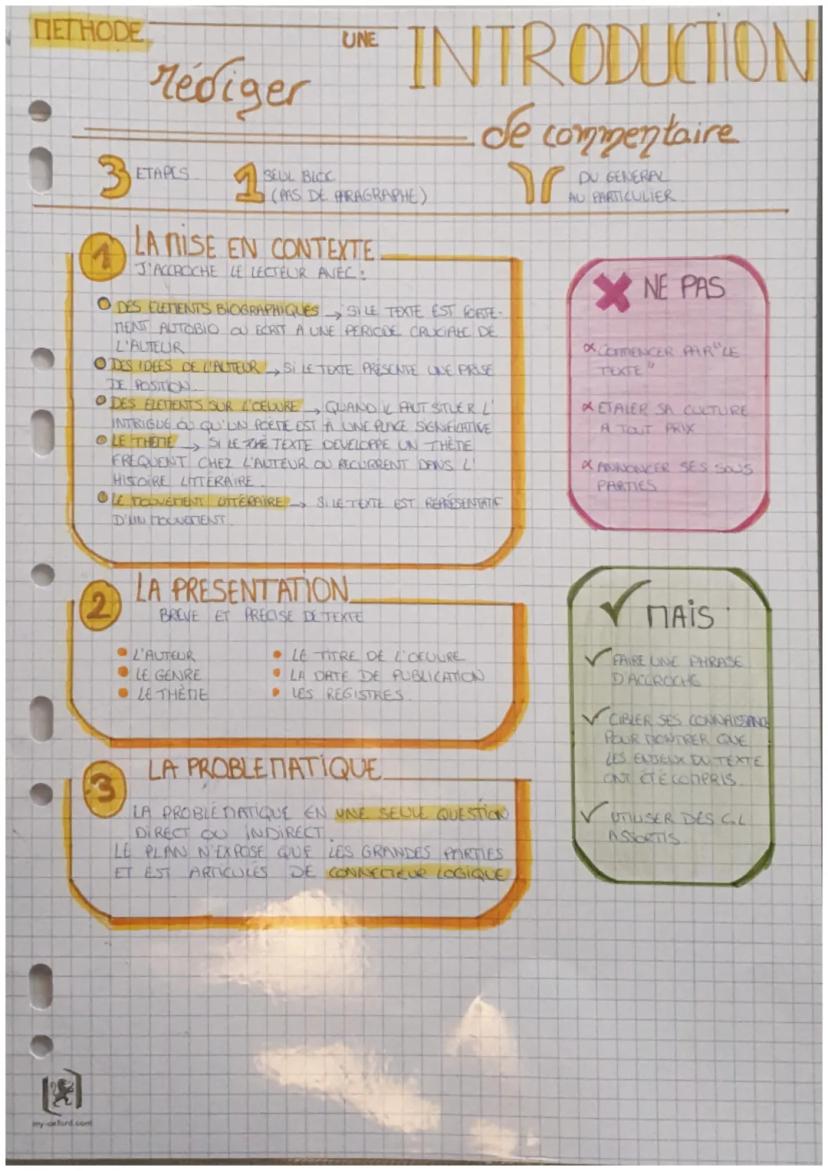 METHODE
rédiger
UNE
INTRODUCTION
de commentaire
3 ETAPES
1 SEUL BLOC
(PAS DE PARAGRAPHE)
DU GENERAL
AU PARTICULIER
1 LA MISE EN CONTEXTE
J'ACCROCHE LE LECTEUR AVEC :
DES ELEMENTS BIOGRAPHIQUES → SI LE TEXTE EST FORTE-
MENT AUTOBIO OU ECRIT A UNE PERIODE CRUCIALE DE
L'AUTEUR
DES IDEES DE L'AUTEUR → SI LE TEXTE PRÉSENTE UNE PRISE
DE POSITION.
DES ELEMENTS SUR L'OEUVRE → QUAND IL FAUT SITUER L'
INTRIGUE OU QU'UN POEME EST À UNE PLACE SIGNIFICATIVE
LE THEME → SI LE TEXTE DEVELOPPE UN THÈME
FREQUENT CHEZ L'AUTEUR OU RECURRENT DANS L'
HISTOIRE LITTÉRAIRE.
LE MOUVEMENT LITTÉRAIRE → SI LE TEXTE EST REPRÉSENTATIF
D'UN MOUVEMENT.
NE PAS
COMMENCER PAR "LE
TEXTE"
ETALER SA CULTURE
A TOUT PRIX
ANNONCER SES SOUS
PARTIES
2 LA PRESENTATION
BREVE ET PRÉCISE DE TEXTE
L'AUTEUR
LE GENRE
LE THÈME
LE TITRE DE L'OEUVRE
LA DATE DE PUBLICATION
LES REGISTRES
✓ MAIS
✓ FAIRE UNE PHRASE
D'ACCROCHE
✓ CIBLER SES CONNAISSANCE
POUR MONTRER QUE
LES ENJEUX DU TEXTE
ONT ÉTÉ COMPRIS.
✓ UTILISER DES C.L
ASSORTIS
3 LA PROBLEMATIQUE
LA PROBLÉMATIQUE EN UNE SEULE QUESTION
DIRECT OU INDIRECT.
LE PLAN N'EXPOSE QUE LES GRANDES PARTIES
ET EST ARTICULÉS DE CONNECTEUR LOGIQUE
my-oxford.com